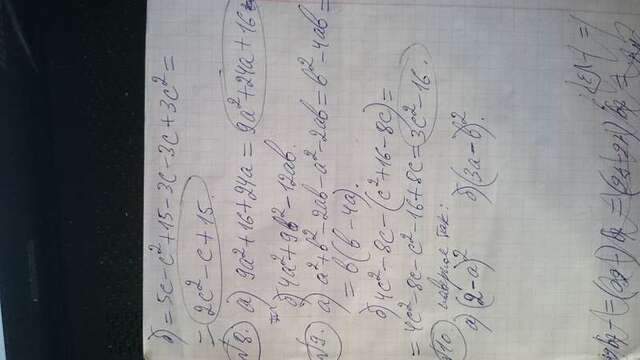 б) = 5c - c² + 15 - 3c - 3c + 3c² =
= 2c² - c + 15
№8. а) 9a² + 16 + 24a = 9a² + 24a + 16
б) 4a² + 9b² - 12ab
№9. а) a² + b² - 2ab - a² - 2ab = b² - 4ab =
= b(b - 4a).
б) 4c² - 8c - (c² + 16 - 8c) =
= 4c² - 8c - c² - 16 + 8c = 3c² - 16.
№10. наверное так:
а) (2 - a)² б) (3a - b)²